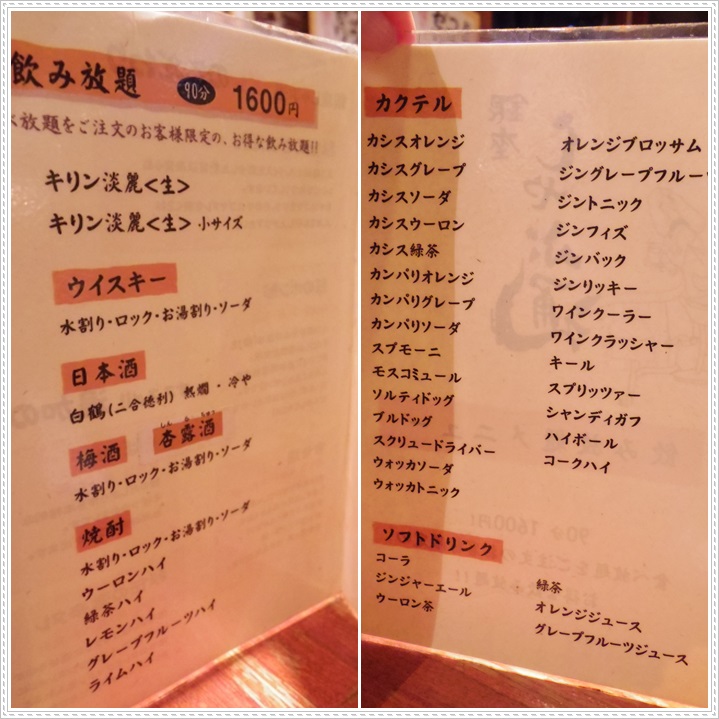 飲み放題 90分 1600円
放題をご注文のお客様限定の、お得な飲み放題!!
キリン淡麗<生>
キリン淡麗<生> 小サイズ
ウイスキー
水割り・ロック・お湯割り・ソーダ
日本酒
白鶴(二合徳利) 熱燗・冷や
梅酒 杏露酒
水割り・ロック・お湯割り・ソーダ
焼酎
水割り・ロック・お湯割り・ソーダ
ウーロンハイ
緑茶ハイ
レモンハイ
グレープフルーツハイ
ライムハイ
カクテル
カシスオレンジ
カシスグレープ
カシスソーダ
カシスウーロン
カシス緑茶
カンパリオレンジ
カンパリグレープ
カンパリソーダ
スプモーニ
モスコミュール
ソルティドッグ
ブルドッグ
スクリュードライバー
ウォッカソーダ
ウォッカトニック
オレンジブロッサム
ジングレープフルー
ジントニック
ジンフィズ
ジンバック
ジンリッキー
ワインクーラー
ワインクラッシャー
キール
スプリッツァー
シャンディガフ
ハイボール
コークハイ
ソフトドリンク
コーラ
ジンジャーエール
ウーロン茶
緑茶
オレンジジュース
グレープフルーツジュース